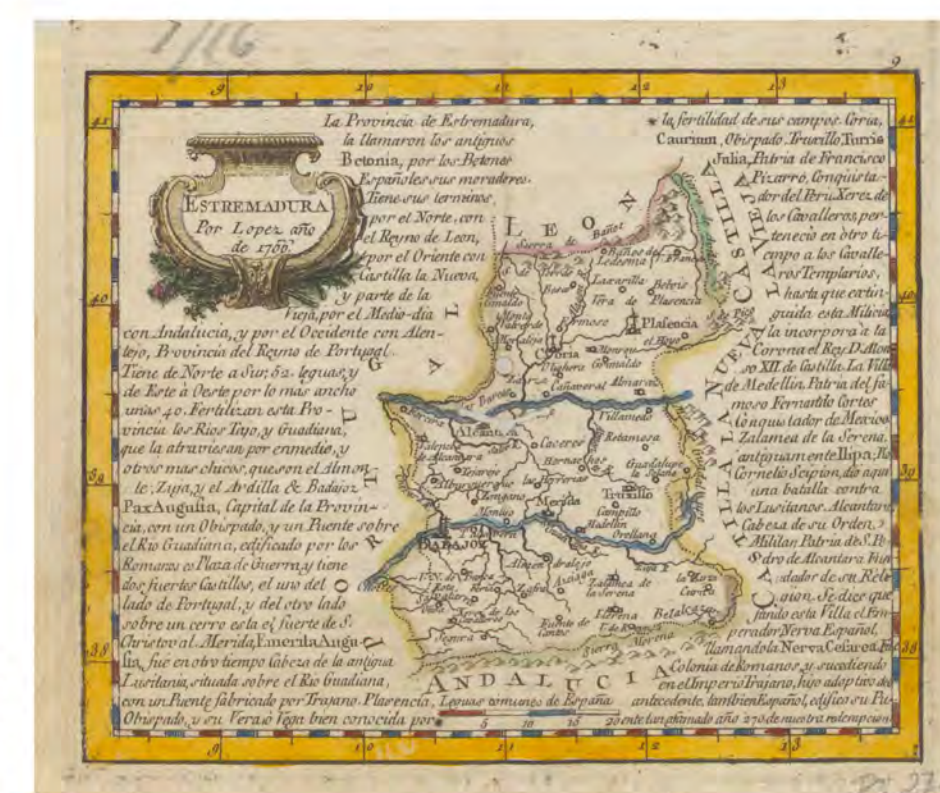 1/16
9
ESTREMADURA
Por Lopez año
de 1766.
La Provincia de Estremadura,
la llamaron los antiguos
Betonia, por los Betones
Españoles sus moradores.
Tiene sus terminos,
por el Norte, con
el Reyno de Leon,
por el Oriente con
Castilla la Nueva,
y parte de la
Vieja, por el Medio-dia
con Andalucia, y por el Occidente con Alen-
tejo, Provincia del Reyno de Portugal.
Tiene de Norte a Sur, 52. leguas, y
de Este à Oeste por lo mas ancho
unas 40. Fertilizan esta Pro-
vincia los Rios Tajo, y Guadiana,
que la atraviesan por enmedio, y
otros mas chicos, que son el Almon-
te, Zuja, y el Ardilla & Badajoz
Pax Augusta, Capital de la Provin-
cia, con un Obispado, y un Puente sobre
el Rio Guadiana, edificado por los
Romanos es Plaza de Guerra, y tiene
dos fuertes Castillos, el uno del
lado de Portugal, y del otro lado
sobre un cerro esta el fuerte de S.
Christoval. Merida, Emerita Augu-
sta, fué en otro tiempo Cabeza de la antigua
Lusitania, situada sobre el Rio Guadiana,
con un Puente fabricado por Trajano. Plasencia,
Obispado, y su Vera ò Vega bien conocida por *
* la fertilidad de sus campos. Coria,
Caurium, Obispado. Truxillo, Turris
Julia, Patria de Francisco
Pizarro, Conquista-
dor del Perú. Xerez de
los Cavalleros, per-
teneció en otro ti-
empo a los Cavalle-
ros Templarios,
hasta que extin-
guida esta Milicia
la incorporó à la
Corona el Rey D. Alon
so XII. de Castilla. La Villa
de Medellin, Patria del fa-
moso Fernando Cortes
Conquistador de Mexico
Zalamea de la Serena,
antiguamente Ilipa;
Cornelio Scipion, dio aqui
una batalla contra
los Lusitanos. Alcantara,
Cabeza de su Orden
Militar, Patria de S. Pe-
dro de Alcantara Fun
dador de su Reli
gion. Se dice que
fundo esta Villa el Em
perador Nerva Español,
llamandola Nerva Cesarea
Colonia de Romanos, y sucediendo
en el Imperio Trajano, hijo adoptivo del
antecedente, tambien Español, edifico su Pu-
ente tan afamado año 270 de nuestra redempcion
LEON
PORTUGAL
CASTILLA LA VIEJA
CASTILLA LA NUEVA
ANDALUCIA
Sierra de Bañor
Baños de
Ledesma
Laxarilla
Plasencia
Coria
Cañaveral
Almaraz
Alcantara
Villamedo
Retamosa
Caceres
Guadalupe
Alburquerque
Truxillo
Campillo
Merida
Medellin
Orellana
Montijo
BADAJOZ
Talavera
Zafra
Zalamea de
la Serena
Fuente de
Cantos
Llerena
Belalcazar
Sierra Morena
Leguas comunes de España
5 10 15 20
9 10 11 12 13
41 40 39 38